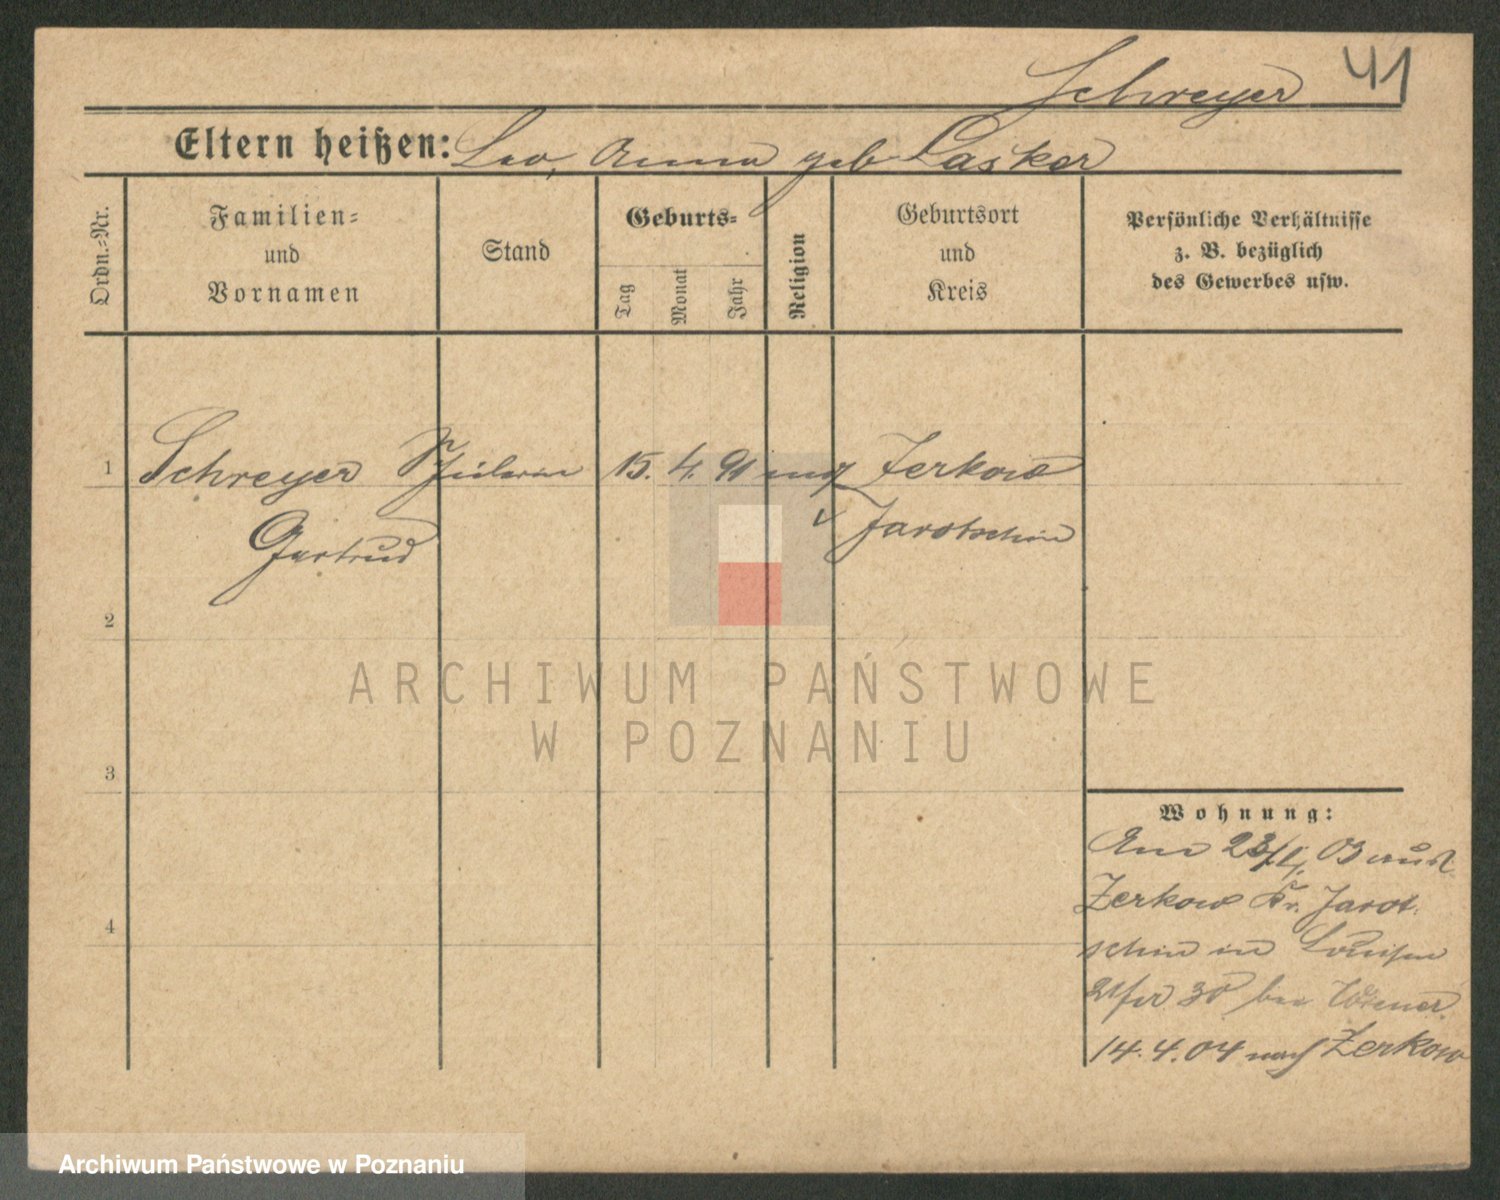 41
Schreyer
Eltern heißen: Leo, Anna geb Lasker
Ordn.=Nr.
Familien=
und
Vornamen
Stand
Geburts=
Tag
Monat
Jahr
Religion
Geburtsort
und
Kreis
Persönliche Verhältnisse
z. B. bezüglich
des Gewerbes usw.
1 Schreyer Schülerin 15. 4. 91 mos Zerkow
Gertrud Jarotschin
2
3
4
Wohnung:
Am 23/4. 03 aus
Zerkow Kr. Jarot
schin in Louisen
str 30 bei Wiener.
14.4.04 nach Zerkow
ARCHIWUM PAŃSTWOWE
W POZNANIU
Archiwum Państwowe w Poznaniu